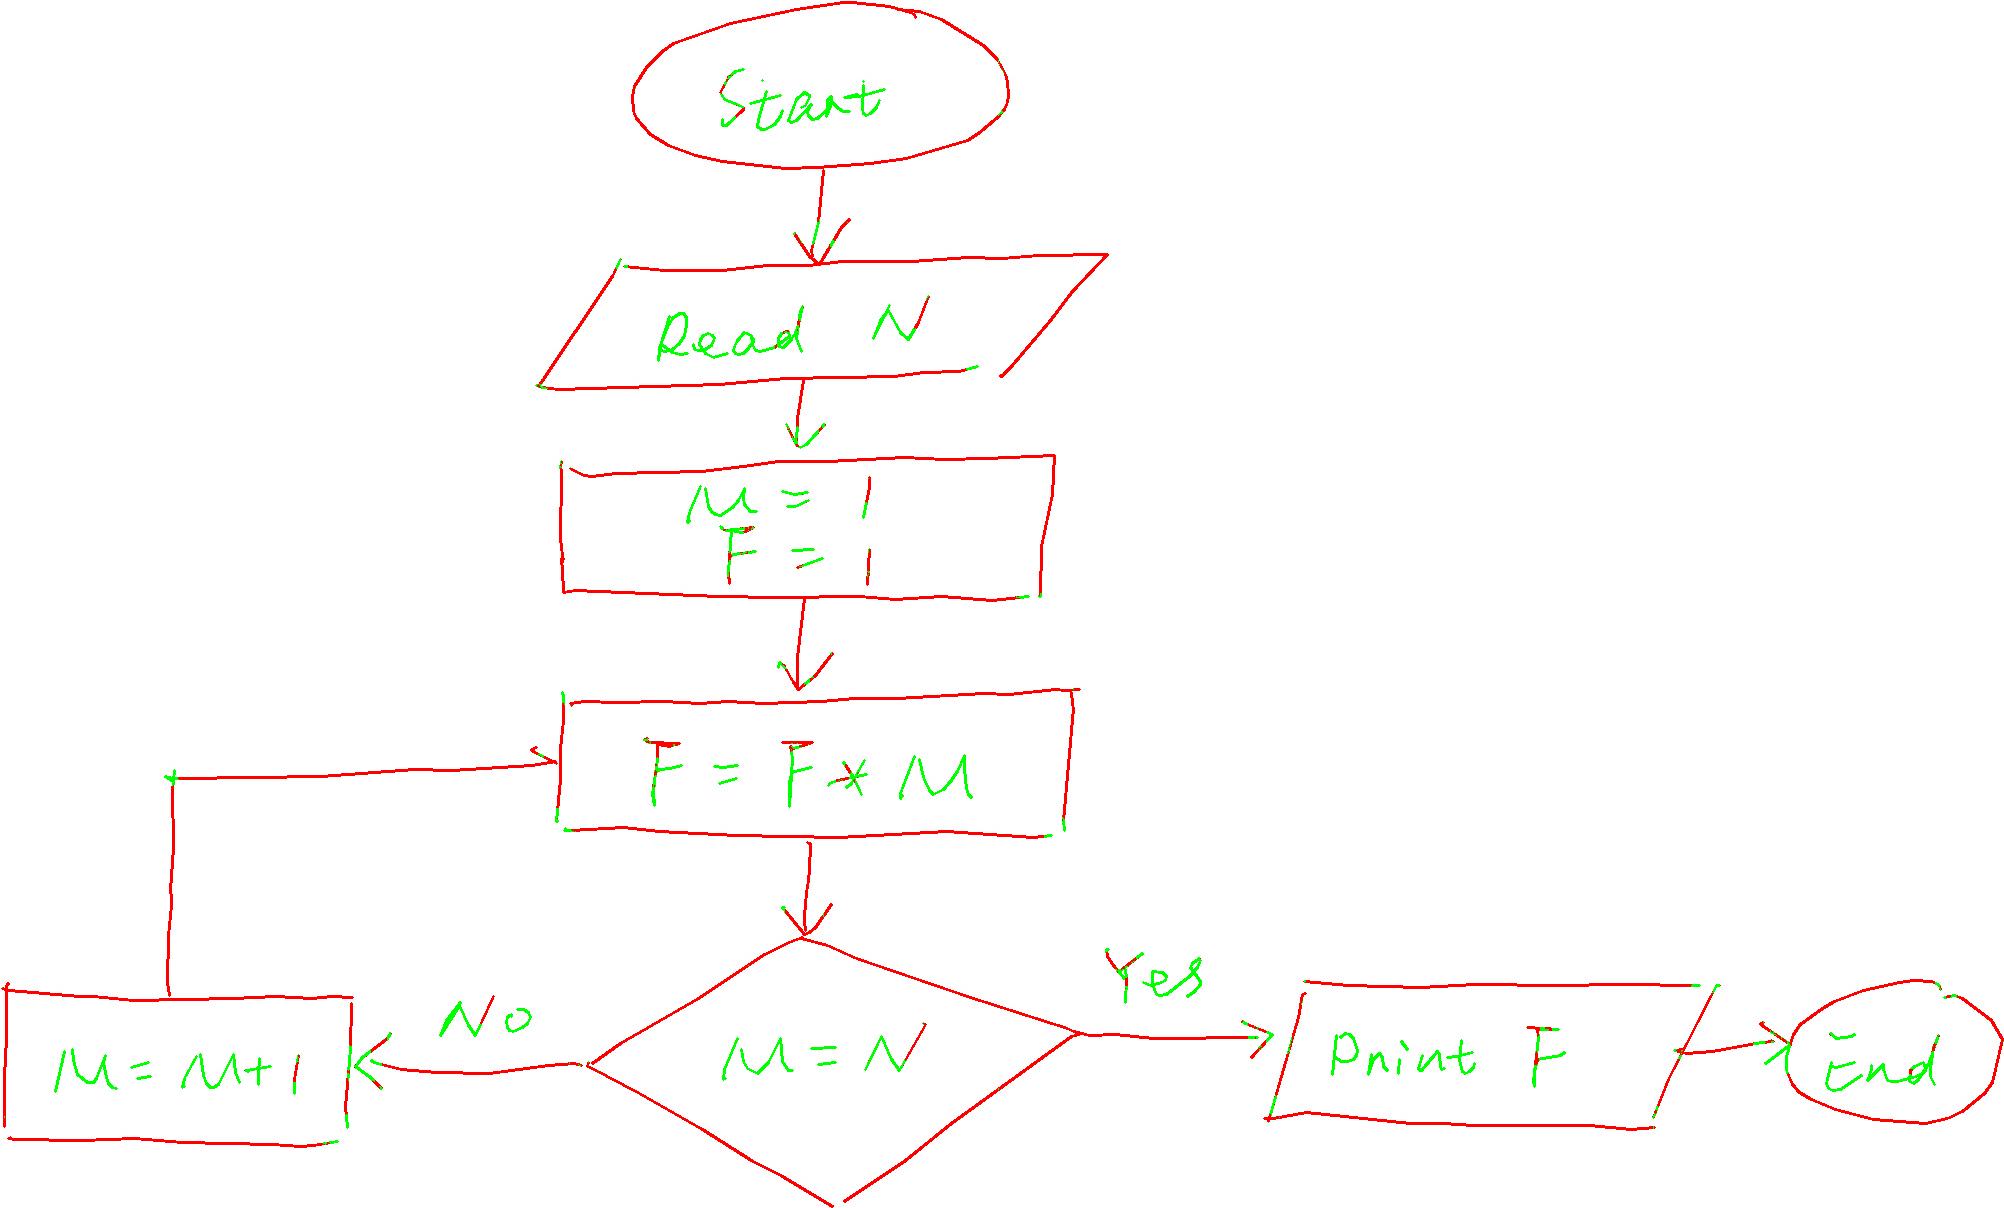 Start
Read N
M = 1
F = 1
F = F * M
M = N
No
Yes
M = M + 1
Print F
End